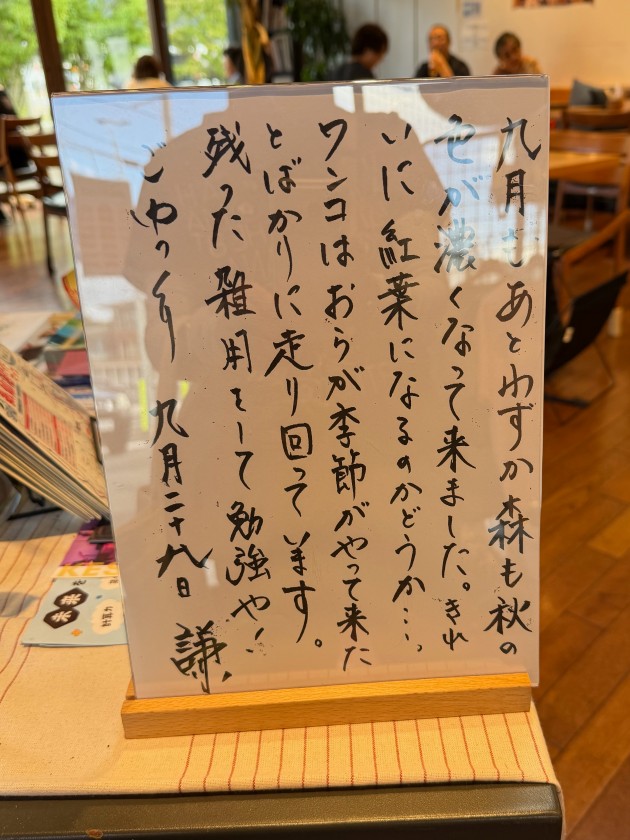 九月もあとわずか森も秋の
色が濃くなって来ました。きれ
いに紅葉になるのかどうか…。
ワンコはおらが季節がやって来た
とばかりに走り回っています。
残った雑用をして勉強や!
ごゆっくり 九月二十九日 謙